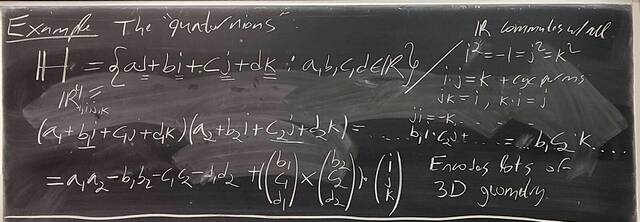 Example The "quaternions".
ℍ = {a1 + bi + cj + dk : a,b,c,d ∈ ℝ}
ℝ⁴ 1,i,j,k
ℝ commutes w/ all
i² = -1 = j² = k²
i·j = k + cyc perms
jk = i, k·i = j
ji = -k
(a₁ + b₁i + c₁j + d₁k)(a₂ + b₂i + c₂j + d₂k) = ..... b₁i·c₂j + ..... = ... b₁c₂k ....
= a₁a₂ - b₁b₂ - c₁c₂ - d₁d₂ + ((b₁ c₁ d₁) × (b₂ c₂ d₂)) · (i j k)
Encodes lots of
3D geometry